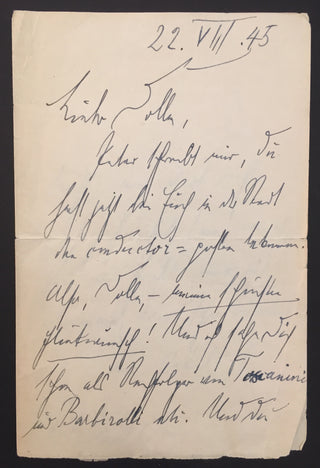 22. VIII. 45
Lieber Volle,
Peter schreibt mir, Du
hast jetzt bei Euch in der Stadt
den conductor = posten bekommen.
Also, Volle, – meinen schönsten
Glückwunsch! Und ich sehe Dich
schon als Nachfolger von Toscanini
und Barbirolli etc. Und Du